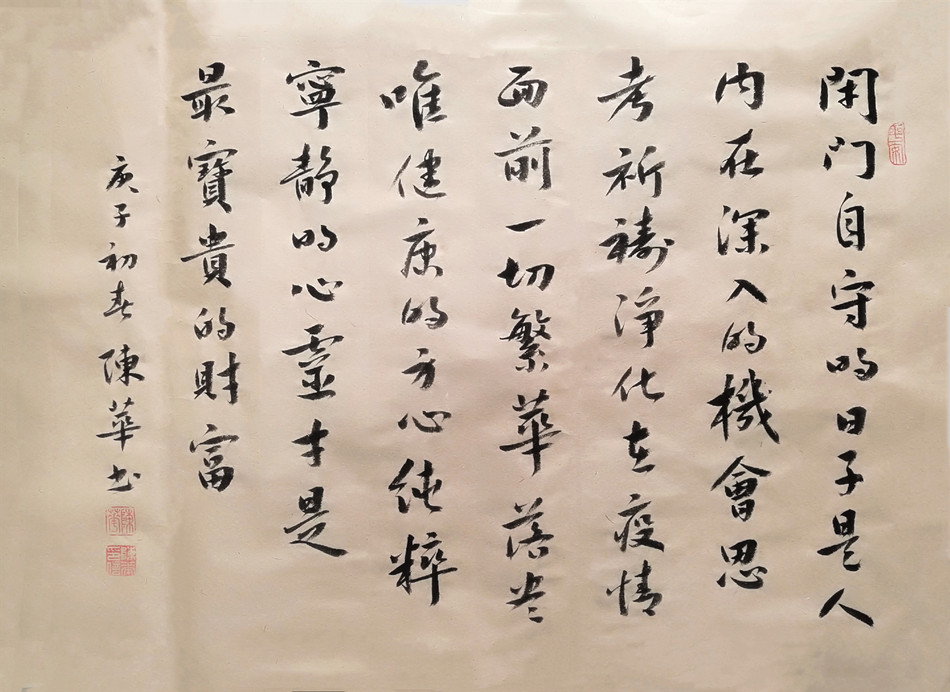 閉门自守的日子是人
内在深入的機會思
考祈禱淨化在疫情
面前一切繁華落尽
唯健康的身心純粹
寧靜的心靈才是
最寶貴的財富
庚子初春陳華书